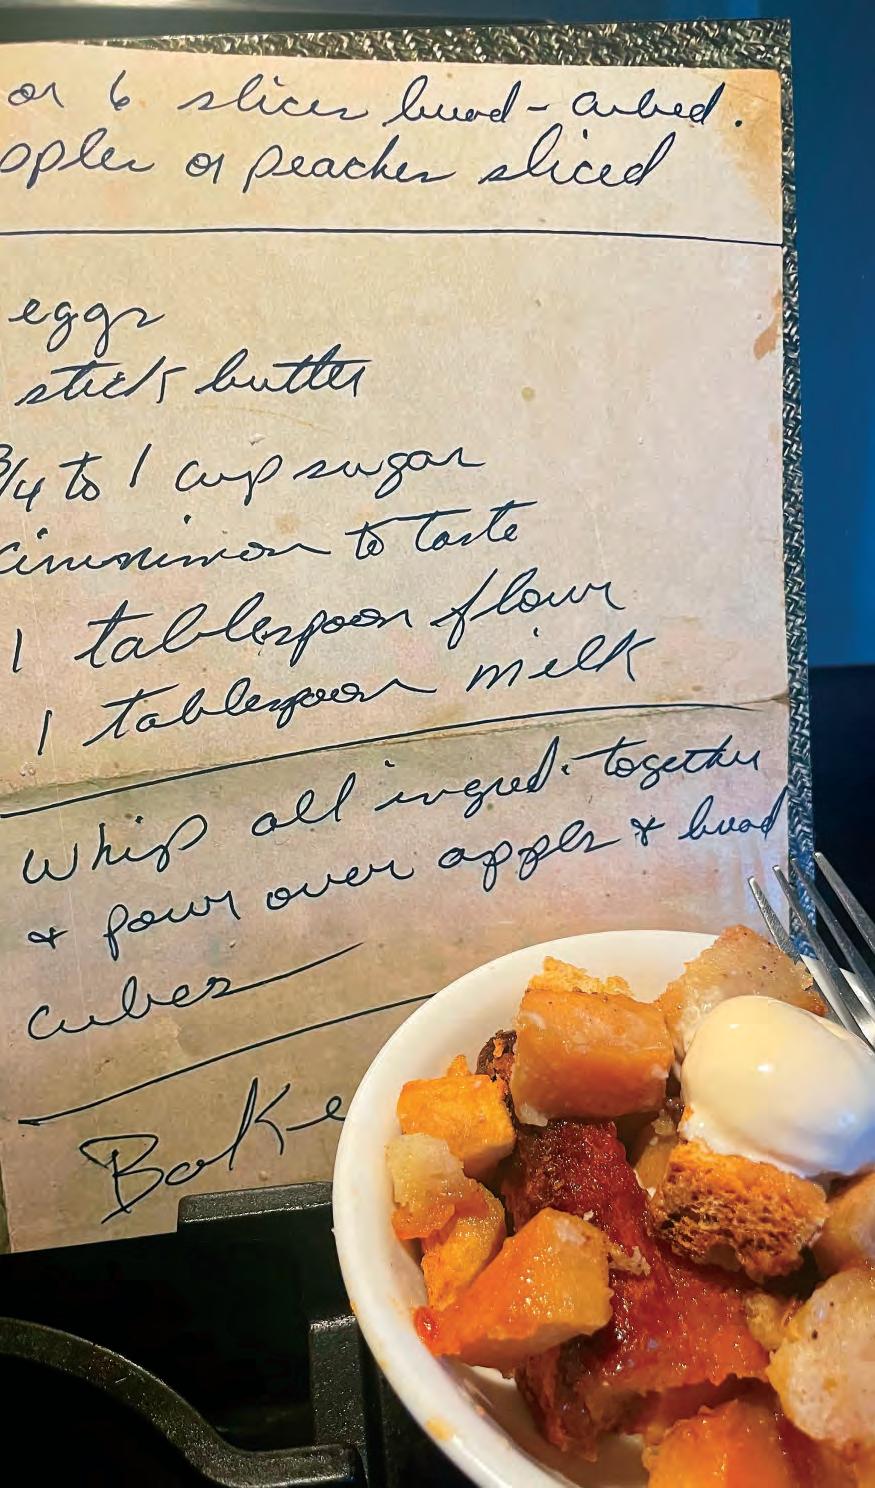 or 6 slices bread - cubed.
pples or peaches sliced
eggs
stick butter
3/4 to 1 cup sugar
cinnnimon to taste
1 tablespoon flour
1 tablespoon milk
Whip all ingred. together
& pour over apples & bread
cubes
Bake